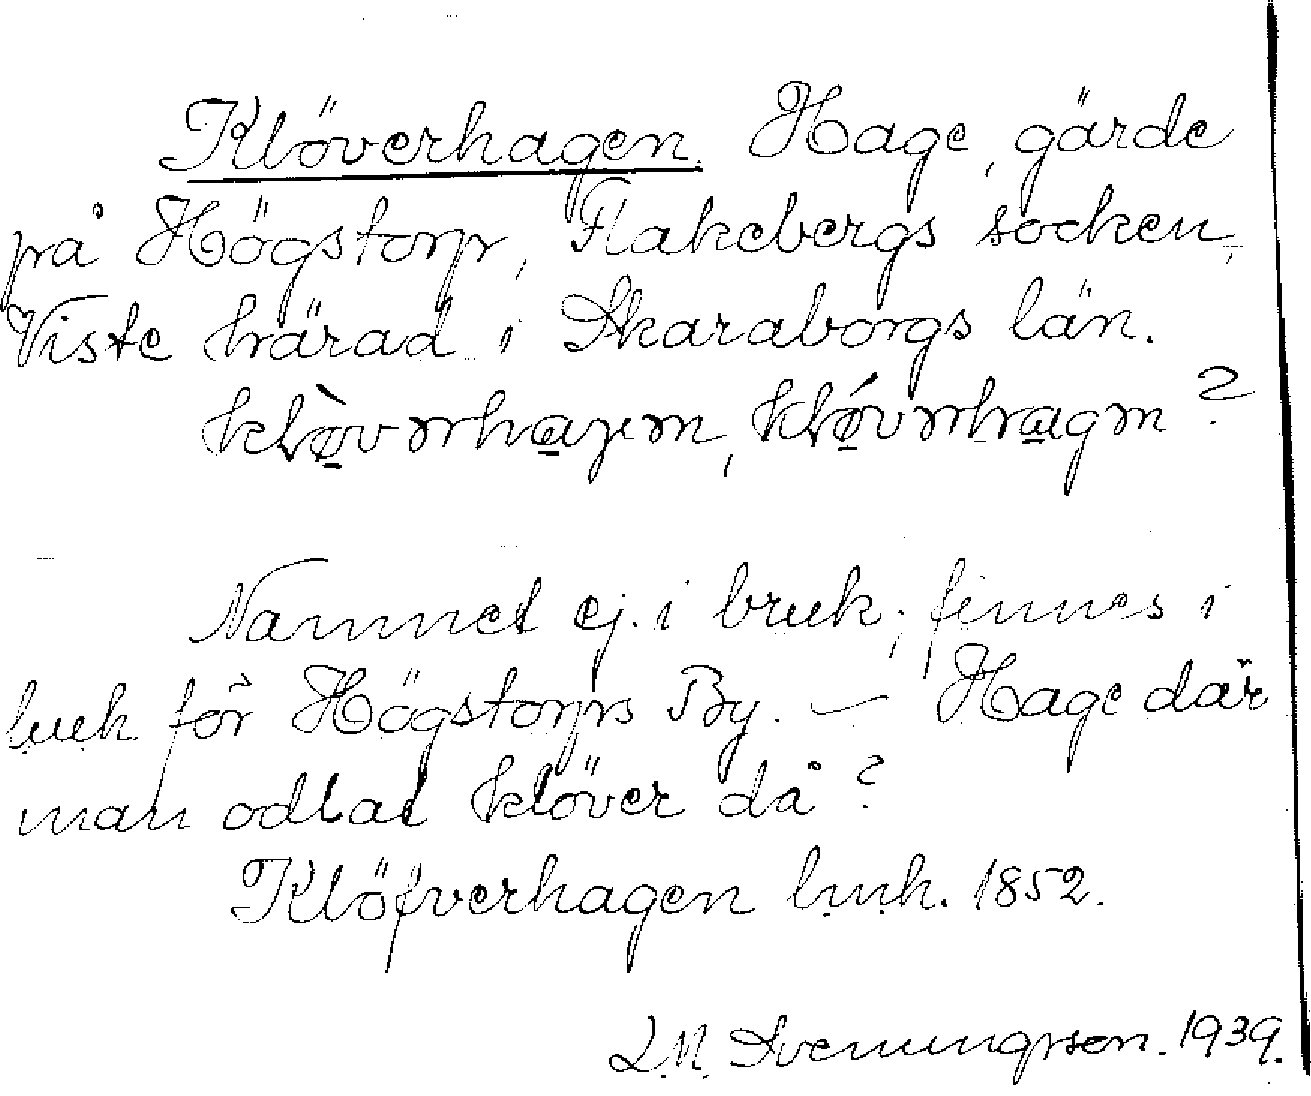 Klöverhagen. Hage, gärde
på Högstorp, Flakebergs socken,
Viste härad i Skaraborgs län.
?
Namnet ej i bruk; finnes i
luk för Högstorps By. – Hage där
man odlat klöver då?
Klöfverhagen luk. 1852.
L.M. Svenungsson. 1939.